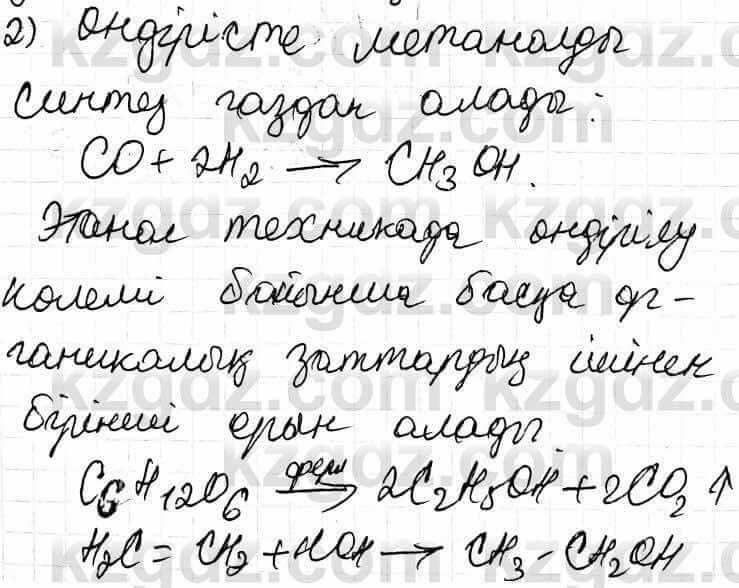 2) Өндірісте метанолды
синтез газдан алады:
CO + 2H₂ → CH₃OH.
Этанол техникада өндірілу
көлемі бойынша басқа ор-
ганикалық заттардың ішінен
бірінші орын алады.
C₆H₁₂O₆ —ферм→ 2C₂H₅OH + 2CO₂ ↑
H₂C = CH₂ + HOH → CH₃ - CH₂OH